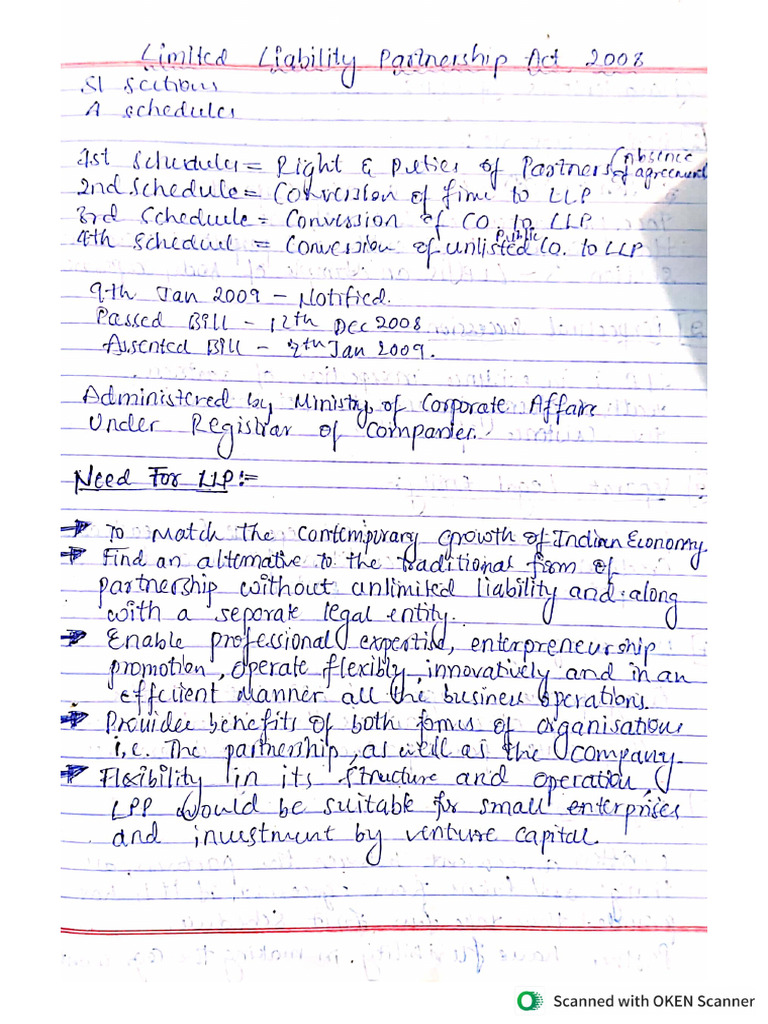 Limited Liability Partnership Act 2008
81 sections
4 schedules
1st Schedules = Right & Duties of Partners (absence of agreement
2nd Schedule = Conversion of firm to LLP
3rd Schedule = Conversion of CO. to LLP
4th Schedule = Conversion of unlisted public Co. to LLP
9th Jan 2009 - Notified.
Passed Bill - 12th Dec 2008
Assented Bill - 7th Jan 2009.
Administered by Ministry of Corporate Affairs
Under Registrar of Companies.
Need For LLP:-
→ To match the contempurary growth of Indian Economy.
→ Find an alternative to the traditional form of
partnership without unlimited liability and along
with a seporate legal entity.
→ Enable professional expertise, enterpreneurship
promotion, operate flexibly, innovatively and in an
effcient manner all the business operations.
→ Provides benefits of both forms of organisation
i.e. The partnership, as well as the company.
→ Flexibility in its structure and operation,
LPP would be suitable for small enterprises
and investment by venture capital.
Scanned with OKEN Scanner